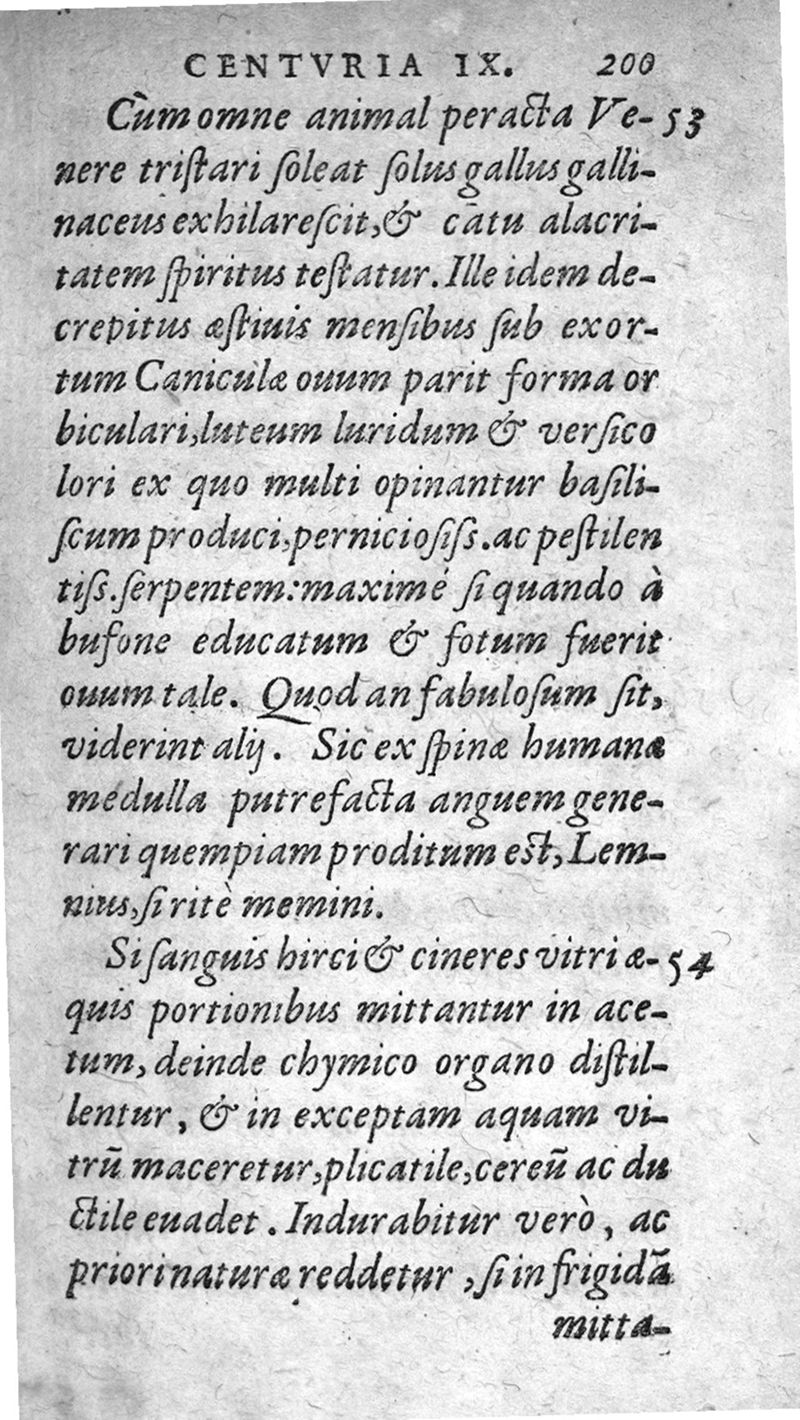 CENTVRIA IX. 200
Cùm omne animal peracta Ve- 53
nere triſtari ſoleat ſolus gallus galli-
naceus exhilareſcit,& cātu alacri-
tatem ſpiritus teſtatur. Ille idem de-
crepitus æſtiuis menſibus ſub exor-
tum Caniculæ ouum parit forma or
biculari,luteum luridum & verſico
lori ex quo multi opinantur baſili-
ſcum produci,pernicioſiſs.ac peſtilen
tiſs.ſerpentem:maximè ſi quando à
bufone educatum & fotum fuerit
ouum tale. Quod an fabuloſum ſit,
viderint alij. Sic ex ſpinæ humanæ
medulla putrefacta anguem gene-
rari quempiam proditum eſt,Lem-
nius,ſi ritè memini.
Si ſanguis hirci & cineres vitri æ- 54
quis portionibus mittantur in ace-
tum, deinde chymico organo diſtil-
lentur, & in exceptam aquam vi-
trū maceretur,plicatile,cereū ac du
ctile euadet. Indurabitur verò, ac
priori naturæ reddetur, ſi in frigidā
mitta-